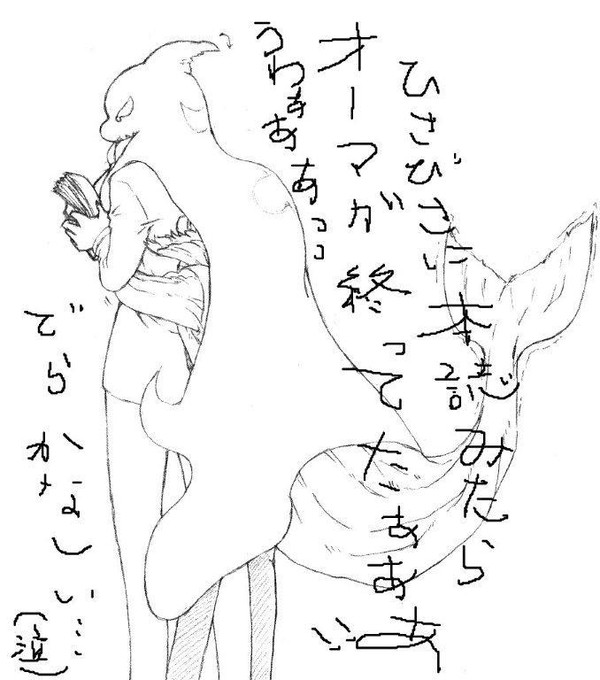 ひさびさに本誌みたら
オーマが終ってたぁああ!!
うわぁああっっ
でらかなしい…
(泣)